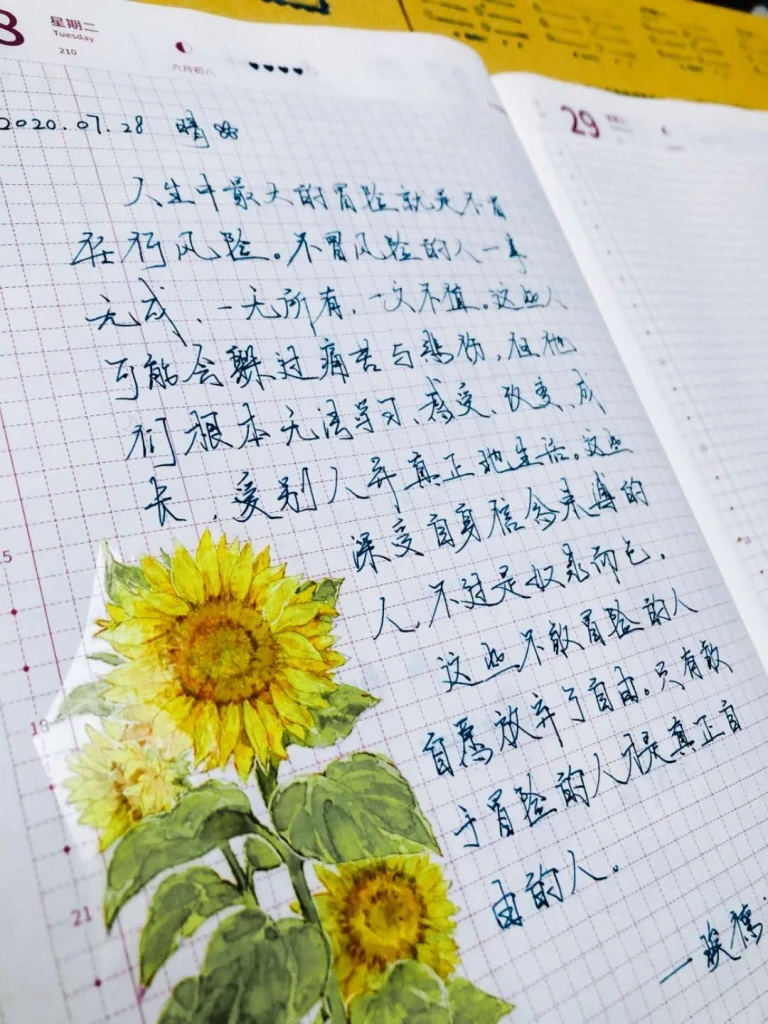 8
星期二
Tuesday
210
六月初八
29
2020.07.28 晴
人生中最大的冒险就是不冒
任何风险。不冒风险的人一事
无成、一无所有,一文不值。这些人
可能会躲过痛苦与悲伤,但他
们根本无法学习、感受、改变、成
长、爱别人并真正地生活。这些
深受自身信念束缚的
人,不过是奴隶而已,
这些不敢冒险的人
自愿放弃了自由。只有敢
于冒险的人才是真正自
由的人。
15
19
21